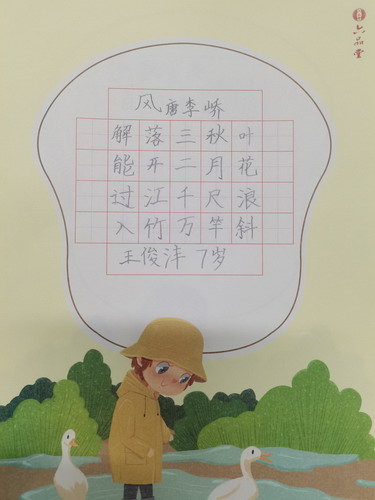 六品堂
风 唐 李峤
解落三秋叶
能开二月花
过江千尺浪
入竹万竿斜
王俊沣 7岁